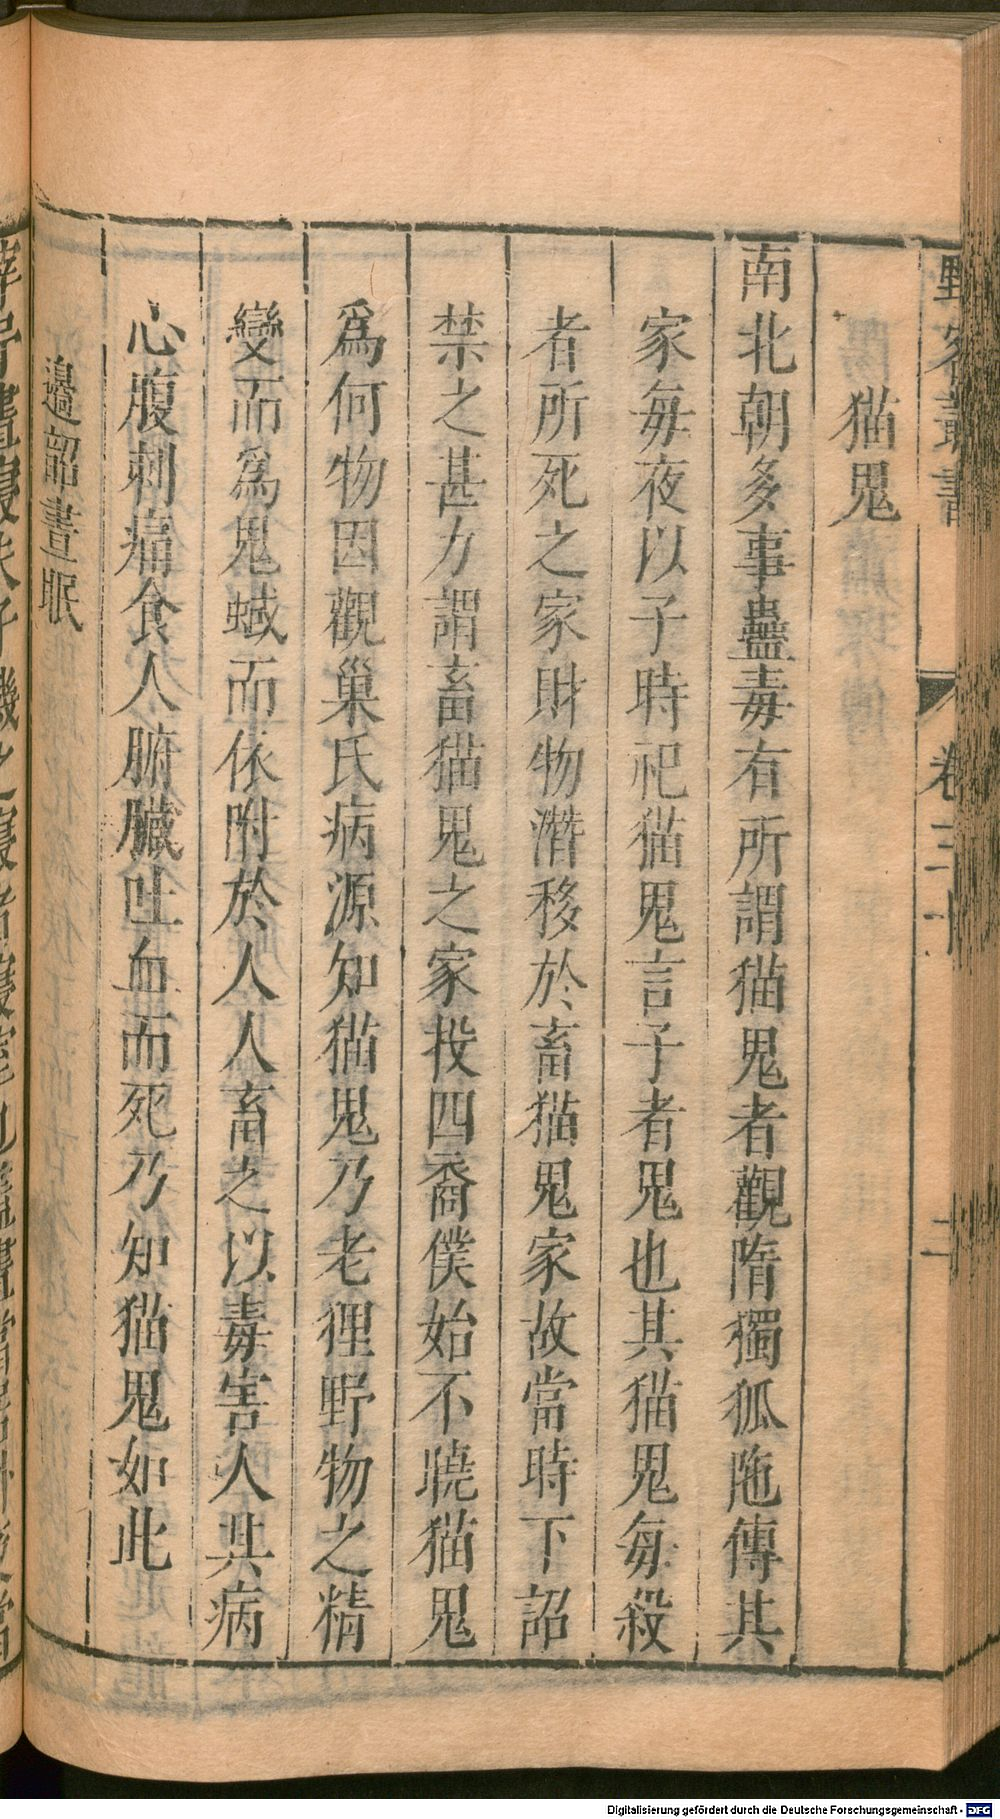 野客叢書
卷三十
二
猫鬼
南北朝多事蠱毒有所謂猫鬼者觀隋獨狐陁傳其
家每夜以子時祀猫鬼言子者鬼也其猫鬼每殺
者所死之家財物潛移於畜猫鬼家故當時下詔
禁之甚力謂畜猫鬼之家投四裔僕始不曉猫鬼
爲何物因觀巢氏病源知猫鬼乃老狸野物之精
變而爲鬼蜮而依附於人人畜之以毒害人其病
心腹刺痛食人腑臟吐血而死乃知猫鬼如此
邊韶晝眠
Digitalisierung gefördert durch die Deutsche Forschungsgemeinschaft - DFG